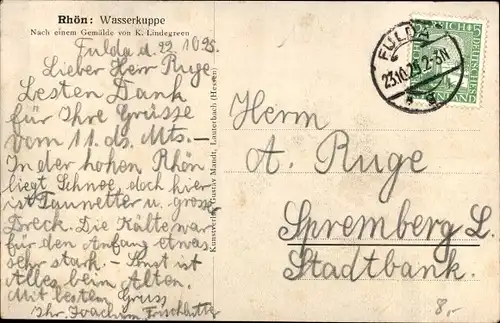 Rhön: Wasserkuppe
Nach einem Gemälde von K. Lindegreen
Fulda d. 22.10.25.
Lieber Herr Ruge,
Besten Dank
für Ihre Grüsse
vom 11. ds. Mts. –
In der hohen Rhön
liegt Schnee, doch hier
ist Tauwetter u. grosser
Dreck. Die Kälte war
für den Anfang etwas
sehr stark. – Sonst ist
Alles beim Alten.
Mit bestem Gruss
Ihr Joachim
Kunstverlag Gustav Mandt, Lauterbach (Hessen)
FULDA
23.10.25. 2-3N
Herrn
A. Ruge
Spremberg L.
Stadtbank.
8,-